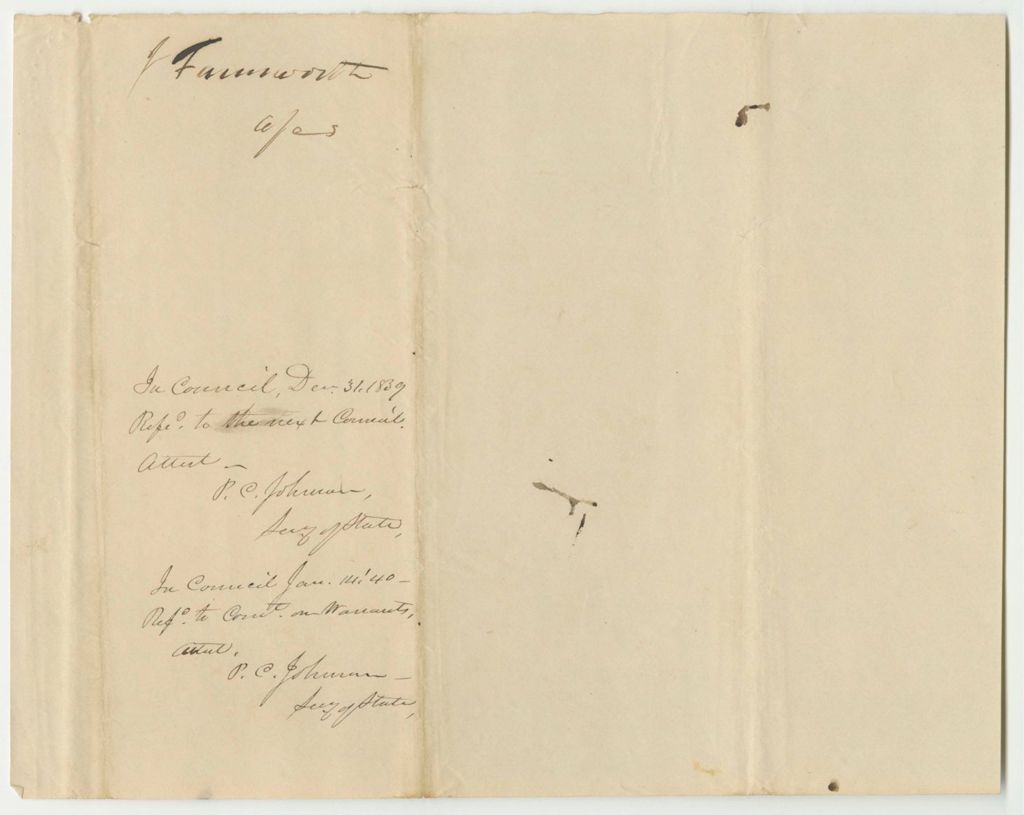 J Farnsworth
a/cs
In Council, Dec. 31. 1839
Refd. to the next Council.
Attest —
P. C. Johnson,
Secy of State,
In Council Jan. 14. '40 —
Refd. to Comt. on Warrants,
Attest.
P. C. Johnson —
Secy of State,